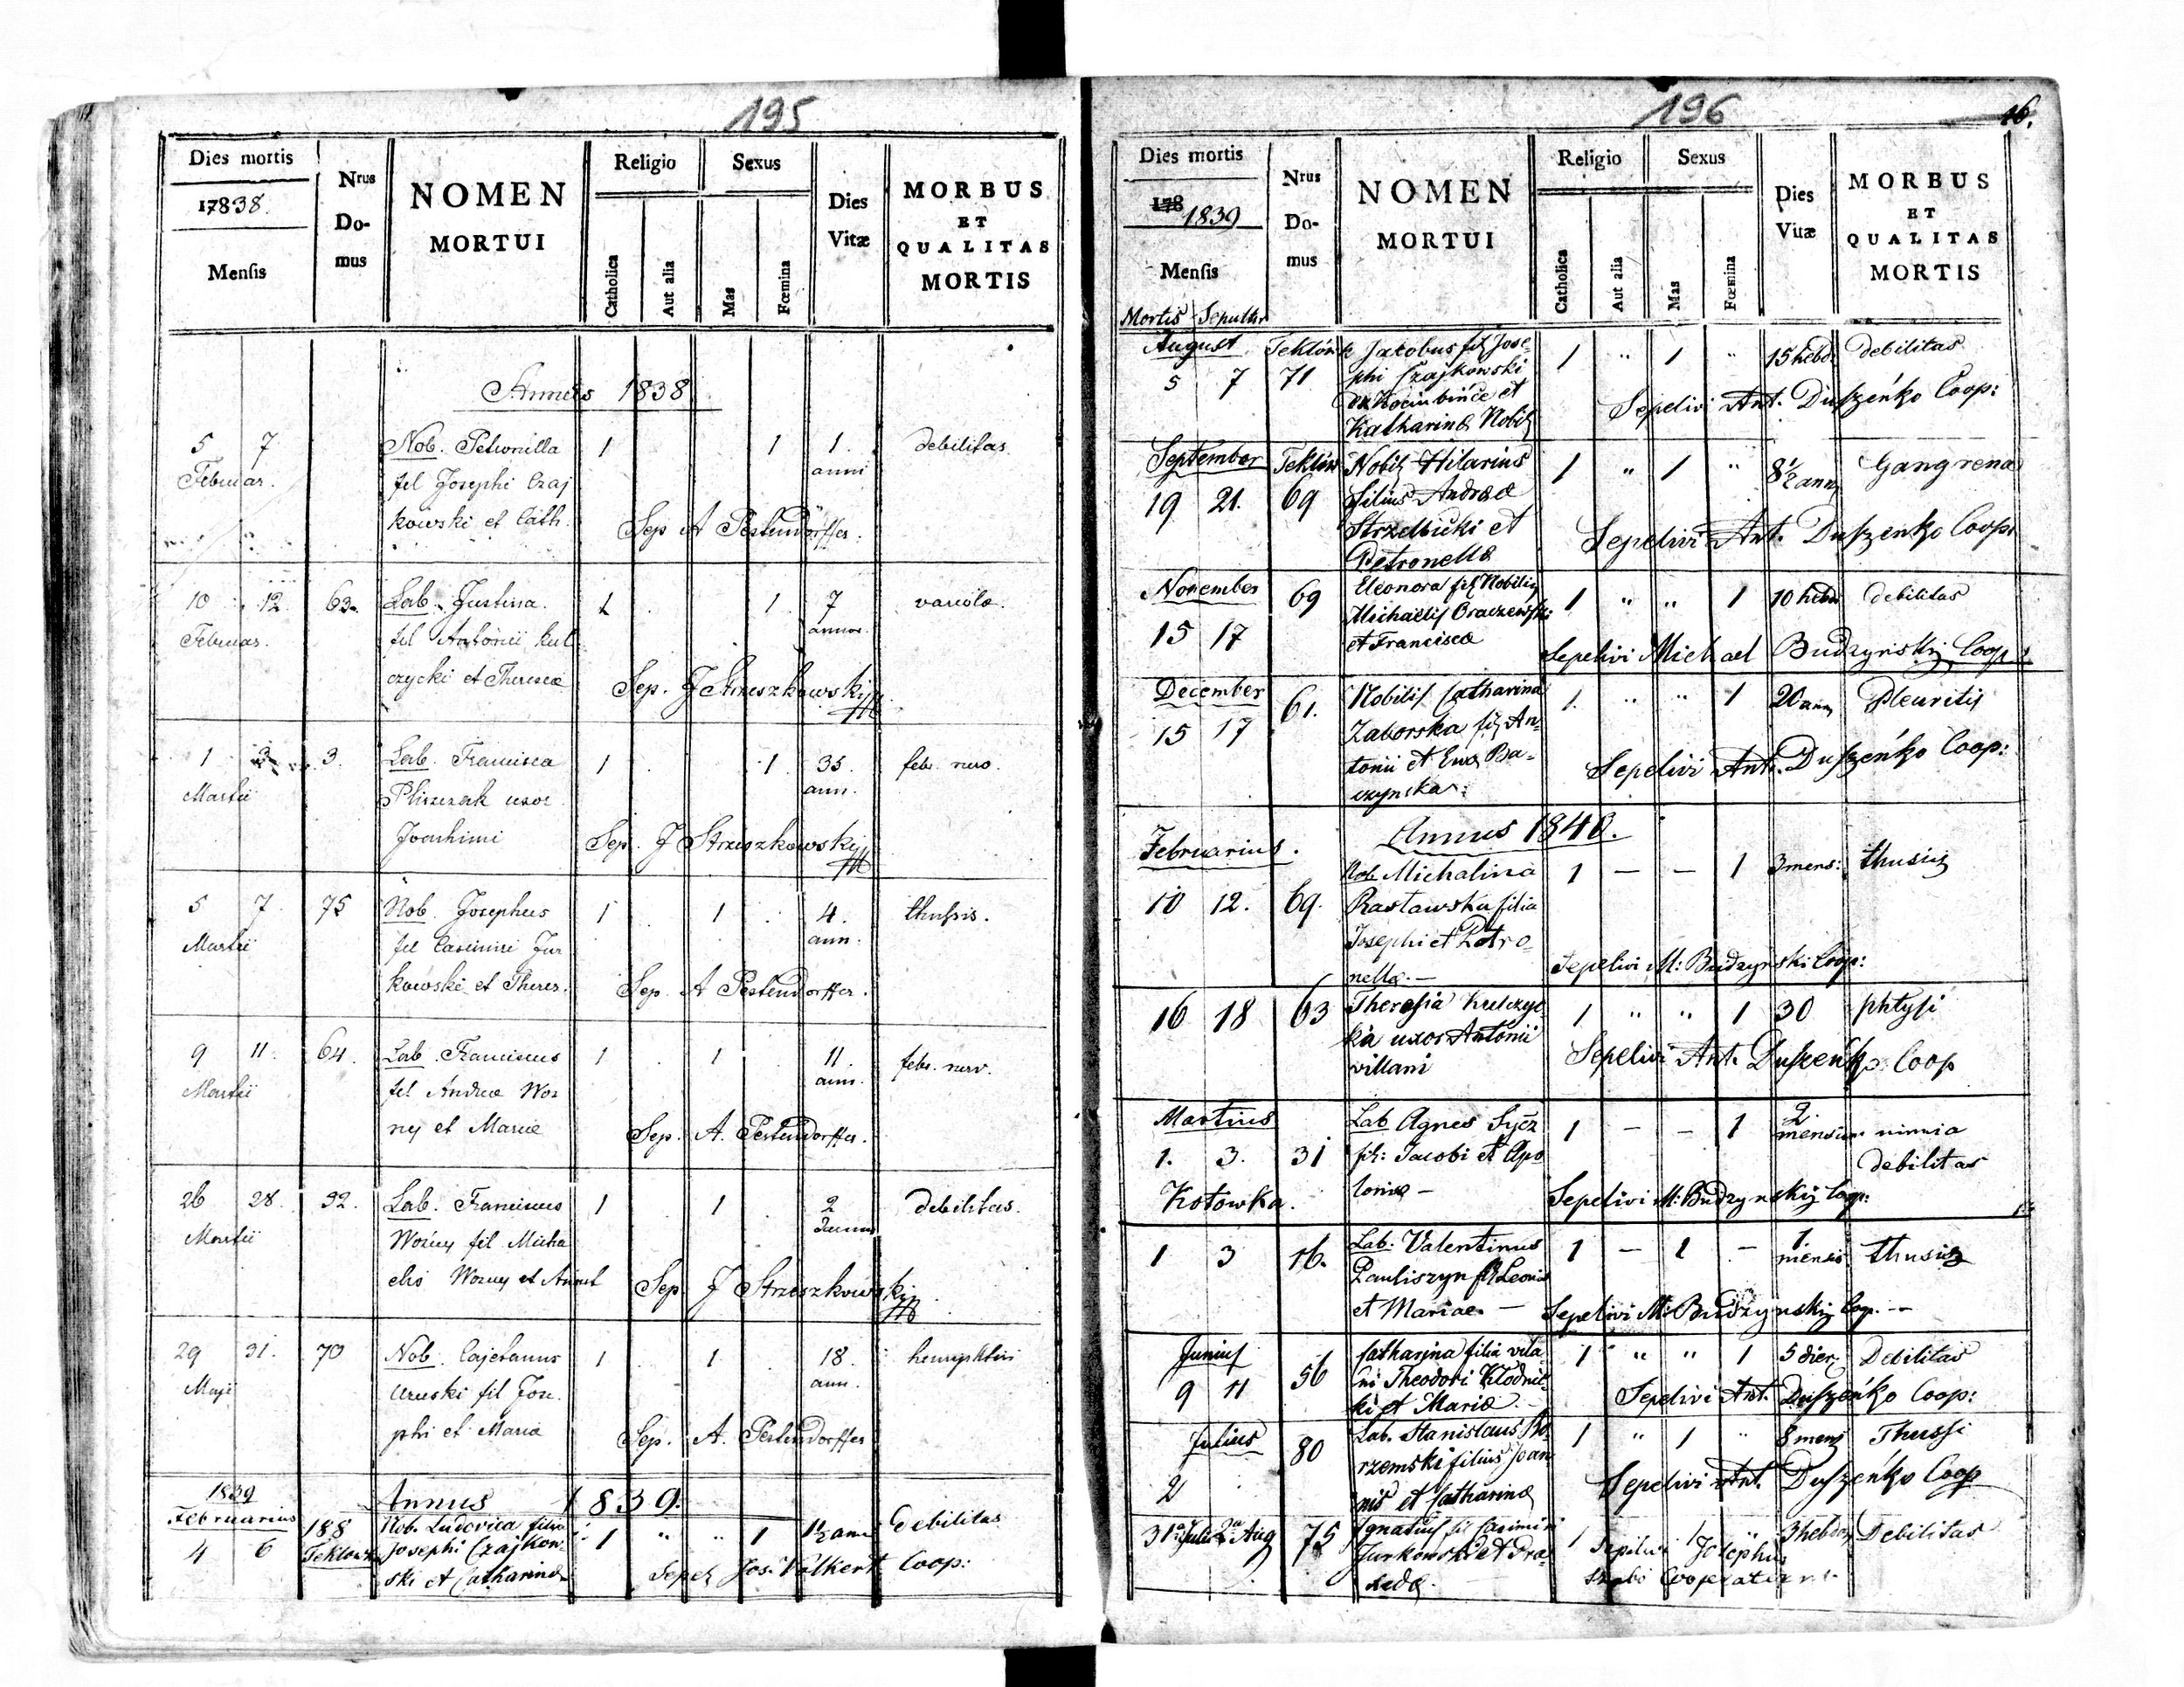 195
Dies mortis
17838.
Mensis
Nrus
Do-
mus
NOMEN
MORTUI
Religio
Catholica
Aut alia
Sexus
Mas
Fœmina
Dies
Vitæ
MORBUS
ET
QUALITAS
MORTIS
Annus 1838
5 7 Nob. Petronilla 1 1 1. debilitas.
Februar. fil Josephi Czaj anni
kowski et Cath.
Sep A Pestendorffer.
10 12. 63. Lab. Justina. 1 1 7 variola.
Februar. fil Antonii Kul annor.
czycki et Theresiæ
Sep. J Strzeszkowskij
1 3 3. Lab. Francisca 1 1 35. febr. nerv.
Martii uxor ann.
Joachimi
Sep. J Strzeszkowskij
5 7. 75 Nob. Josephus 1 1 4. thussis.
Martii fil Casimiri Jur ann.
kowski et Theres.
Sep. A Pestendorffer.
9 11. 64. Lab. Franciscus 1 1 11. febr. nerv.
Martii fil Andreæ Woz ann.
ny et Mariæ
Sep. A. Pestendorffer.
26 28. 32. Lab. Franciscus 1 1 2 debilitas.
Martii Wozny fil Micha
elis Wozny et
Sep. J Strzeszkowskij
29 31. 70 Nob. Cajetanus 1 1 18.
Maji fil Jose ann.
phi et Mariæ
Sep. A. Pestendorffer
1839 Annus 1839.
Februarius 188 Nob. Ludovica filia 1 " " 1 1½ ann Debilitas
4 6 Teklowka Josephi Czajkow-
ski et Catharinæ
Sepel Jos. Volkert Coop:
196
16.
Dies mortis
178 1839
Mensis
Mortis Sepultur
Nrus
Do-
mus
NOMEN
MORTUI
Religio
Catholica
Aut alia
Sexus
Mas
Fœmina
Dies
Vitæ
MORBUS
ET
QUALITAS
MORTIS
August Teklówk Jakobus fil Jose- 1 " 1 " 15 hebd. debilitas
5 7 71 phi Czajkowski
et
Katharinæ Nobil
Sepelivi Ant. Duszeńko Coop:
September Teklów Nobil Hilarius 1 " 1 " 8½ ann Gangrena
19 21. 69 filius Andreæ
Strzelbicki et
Petronellæ
Sepelivi Ant. Duszenko Coop:
November 69 Eleonora fil Nobilis 1 " " 1 10 hebd debilitas
15 17 Michaelis
et Franciscæ
Sepelivi Michael Budzynskij Coop:
December 61. Nobilis Catharina 1. " " 1 20 ann Pleuritis
15 17 Zaborska fil An-
tonii et Evæ Ba-
czynska.
Sepelivi Ant. Duszeńko Coop:
Annus 1840.
Februarius. Nob. Michalina 1 — — 1 3 mens: thusis
10 12. 69. Rastawska filia
Josephi et Petro-
nellæ. —
Sepelivi M: Budzynski Coop:
16 18 63 Theresia Kulczyc- 1 " " 1 30 phtysi
ka uxor Antonii
villani
Sepelivi Ant. Duszeńko Coop
Martius Lab Agnes Sycz 1 — — 1 2 mensium nimia
1. 3. 31 fil: Jacobi et Apo debilitas
Kotowka. loniæ —
Sepelivi M: Budzynskij Coop:
1 3 16. Lab. Valentinus 1 — 1 — 1. mensis thusis
Pauliszyn fil Leonis
et Mariae. —
Sepelivi M: Budzynskij Coop. —
Junius 56 Catharina filia vila- 1 " " 1 5 dier. Debilitas
9 11 ni Theodori Kłodnic-
ki et Mariæ. —
Sepelivi Ant. Duszeńko Coop:
Julius 80 Lab. Stanislaus Bo- 1 " 1 " 8 mens Thussi
2 rzemski filius Joan
nis et Catharinæ
Sepelivi Ant. Duszeńko Coop
31 Julii 2 Aug 75 Ignatius fil Casimiri 1 " 1 " 3 hebdo Debilitas
Jurkowski et Pra-
xedæ.
Sepelivi Josephus
Szabo Cooperator